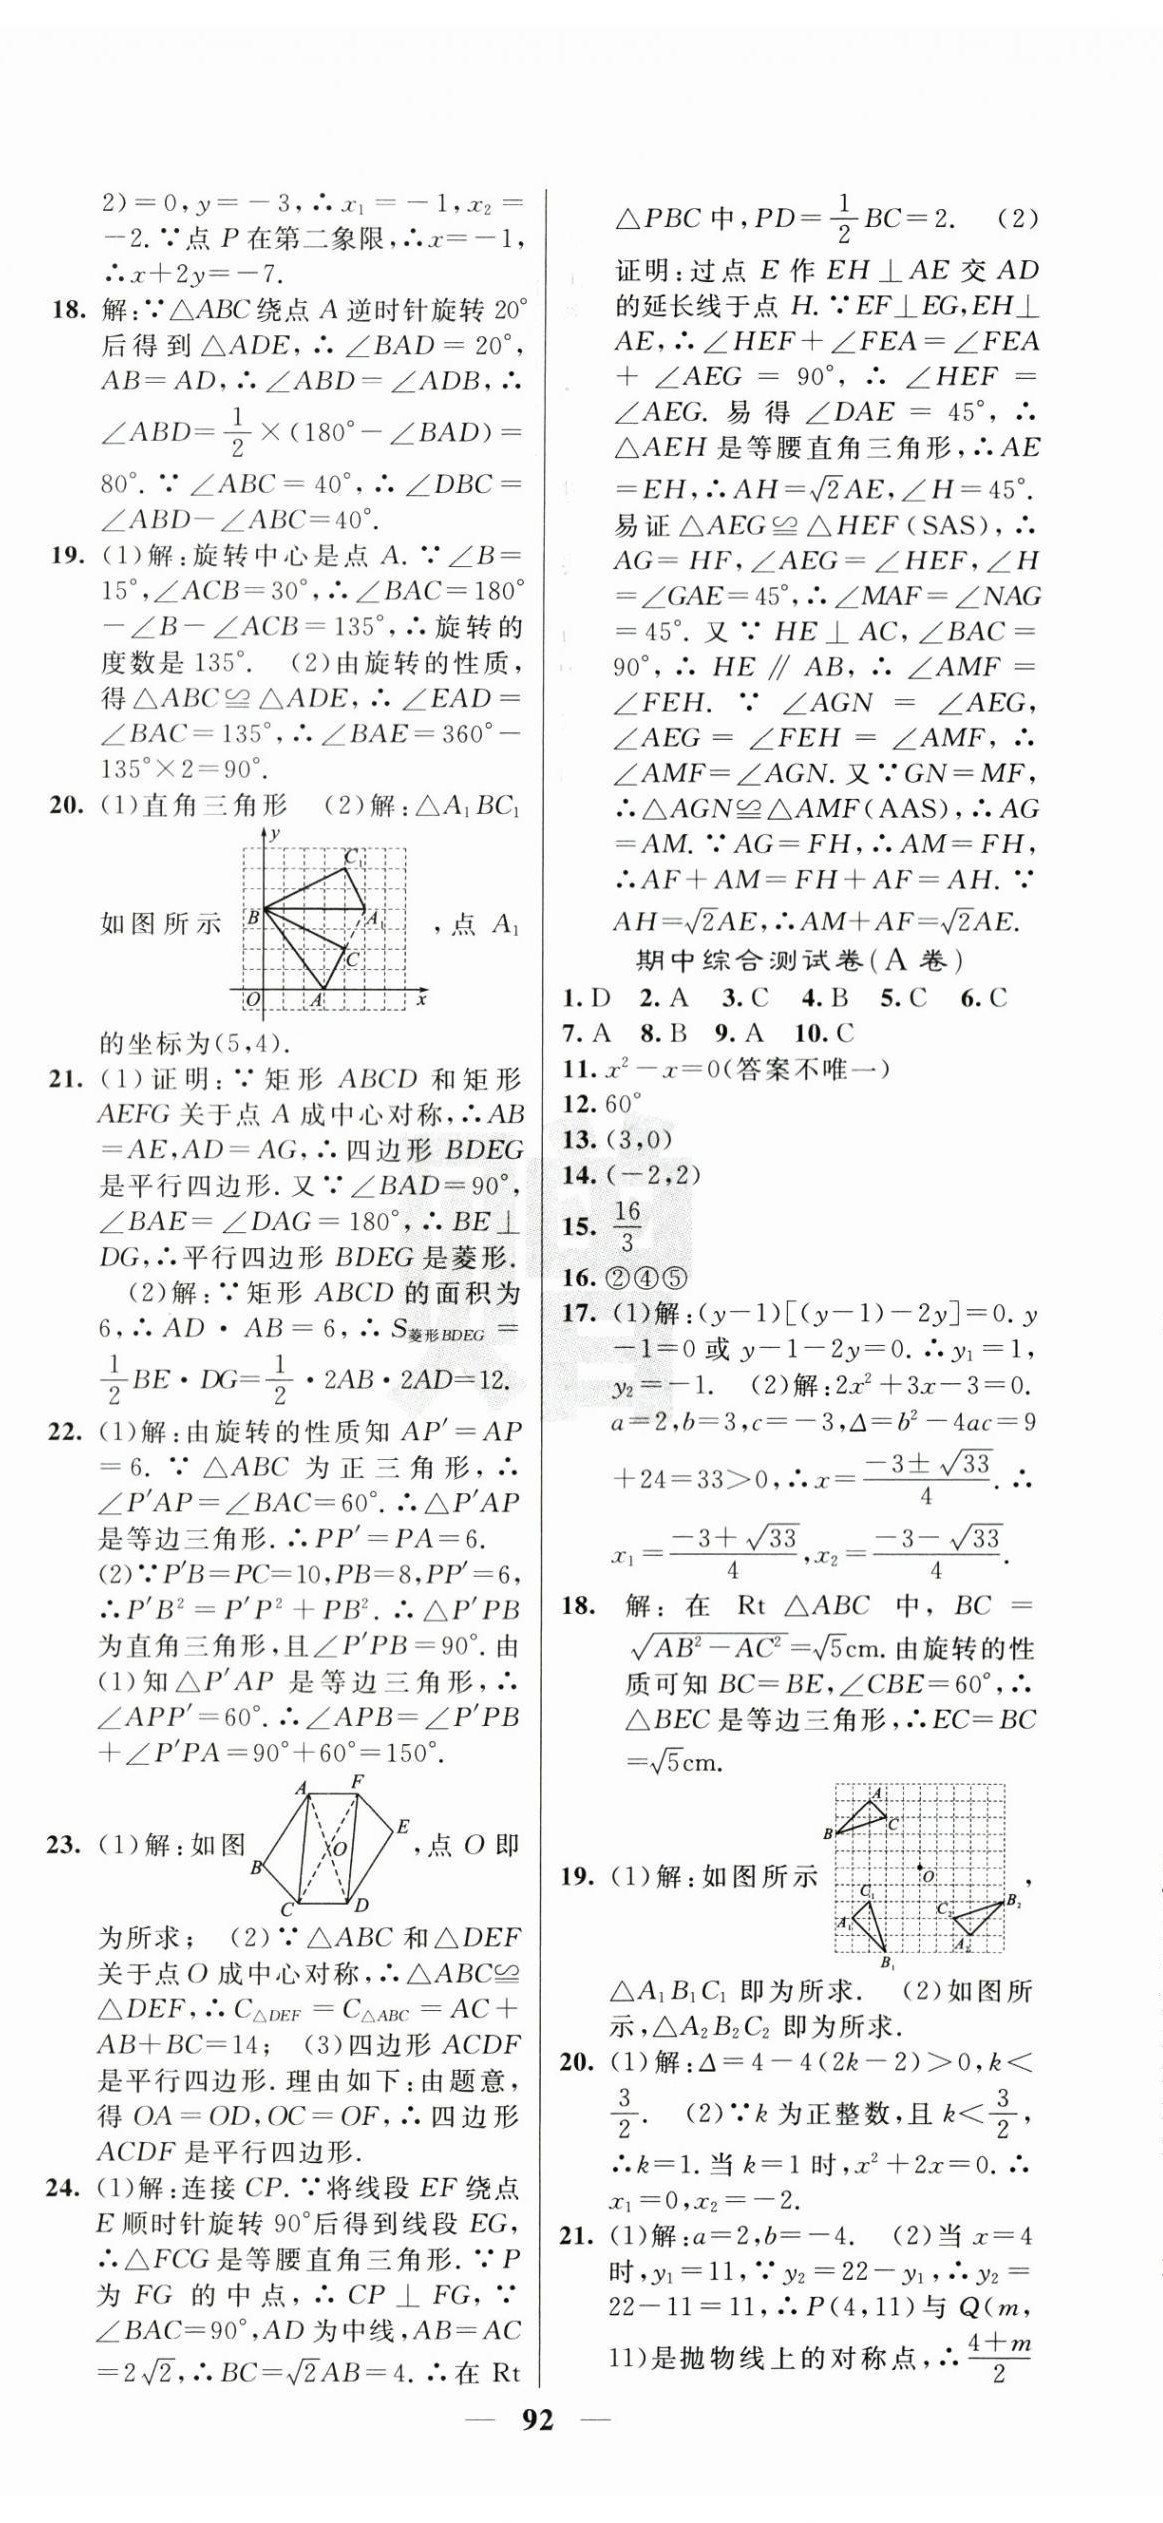 2)=0,y=-3,∴x₁=-1,x₂=
-2.∵点 P 在第二象限,∴x=-1,
∴x+2y=-7.
18. 解:∵△ABC绕点 A 逆时针旋转 20°
后得到△ADE,∴∠BAD=20°,
AB=AD,∴∠ABD=∠ADB,∴
∠ABD=1/2×(180°-∠BAD)=
80°.∵∠ABC=40°,∴∠DBC=
∠ABD-∠ABC=40°.
19. (1)解:旋转中心是点 A.∵∠B=
15°,∠ACB=30°,∴∠BAC=180°
-∠B-∠ACB=135°,∴旋转的
度数是 135°. (2)由旋转的性质,
得△ABC≌△ADE,∴∠EAD=
∠BAC=135°,∴∠BAE=360°-
135°×2=90°.
20. (1)直角三角形 (2)解:△A₁BC₁
y
C₁
如图所示 B A₁ ,点 A₁
C
O A x
的坐标为(5,4).
21. (1)证明:∵矩形 ABCD 和矩形
AEFG 关于点 A 成中心对称,∴AB
=AE,AD=AG,∴四边形 BDEG
是平行四边形.又∵∠BAD=90°,
∠BAE=∠DAG=180°,∴BE⊥
DG,∴平行四边形 BDEG 是菱形.
(2)解:∵矩形 ABCD 的面积为
6,∴AD·AB=6,∴S菱形BDEG=
1/2BE·DG=1/2·2AB·2AD=12.
22. (1)解:由旋转的性质知 AP′=AP
=6.∵△ABC 为正三角形,∴
∠P′AP=∠BAC=60°.∴△P′AP
是等边三角形.∴PP′=PA=6.
(2)∵P′B=PC=10,PB=8,PP′=6,
∴P′B²=P′P²+PB².∴△P′PB
为直角三角形,且∠P′PB=90°.由
(1)知△P′AP 是等边三角形,∴
∠APP′=60°.∴∠APB=∠P′PB
+∠P′PA=90°+60°=150°.
A F
E
23. (1)解:如图 O ,点 O 即
B
C D
为所求; (2)∵△ABC 和△DEF
关于点 O 成中心对称,∴△ABC≌
△DEF,∴C△DEF=C△ABC=AC+
AB+BC=14; (3)四边形 ACDF
是平行四边形.理由如下:由题意,
得 OA=OD,OC=OF,∴四边形
ACDF 是平行四边形.
24. (1)解:连接 CP.∵将线段 EF 绕点
E 顺时针旋转 90°后得到线段 EG,
∴△FCG 是等腰直角三角形.∵P
为 FG 的中点,∴CP⊥FG,∵
∠BAC=90°,AD 为中线,AB=AC
=2√2,∴BC=√2AB=4.∴在 Rt
△PBC 中,PD=1/2BC=2. (2)
证明:过点 E 作 EH⊥AE 交 AD
的延长线于点 H.∵EF⊥EG,EH⊥
AE,∴∠HEF+∠FEA=∠FEA
+∠AEG=90°,∴∠HEF=
∠AEG.易得∠DAE=45°,∴
△AEH 是等腰直角三角形,∴AE
=EH,∴AH=√2AE,∠H=45°.
易证△AEG≌△HEF(SAS),∴
AG=HF,∠AEG=∠HEF,∠H
=∠GAE=45°,∴∠MAF=∠NAG
=45°.又∵HE⊥AC,∠BAC=
90°,∴HE∥AB,∴∠AMF=
∠FEH.∵∠AGN=∠AEG,
∠AEG=∠FEH=∠AMF,∴
∠AMF=∠AGN.又∵GN=MF,
∴△AGN≌△AMF(AAS),∴AG
=AM.∵AG=FH,∴AM=FH,
∴AF+AM=FH+AF=AH.∵
AH=√2AE,∴AM+AF=√2AE.
期中综合测试卷(A 卷)
1. D 2. A 3. C 4. B 5. C 6. C
7. A 8. B 9. A 10. C
11. x²-x=0(答案不唯一)
12. 60°
13. (3,0)
14. (-2,2)
15. 16/3
16. ②④⑤
17. (1)解:(y-1)[(y-1)-2y]=0.y
-1=0 或 y-1-2y=0.∴y₁=1,
y₂=-1. (2)解:2x²+3x-3=0.
a=2,b=3,c=-3,Δ=b²-4ac=9
+24=33>0,∴x=(-3±√33)/4.∴
x₁=(-3+√33)/4,x₂=(-3-√33)/4.
18. 解:在 Rt△ABC 中,BC=
√(AB²-AC²)=√5cm.由旋转的性
质可知 BC=BE,∠CBE=60°,∴
△BEC 是等边三角形,∴EC=BC
=√5cm.
A
B C
19. (1)解:如图所示 O ,
C₁ C₂ B₂
A₁ A₂
B₁
△A₁B₁C₁ 即为所求. (2)如图所
示,△A₂B₂C₂ 即为所求.
20. (1)解:Δ=4-4(2k-2)>0,k<
3/2. (2)∵k 为正整数,且 k<3/2,
∴k=1.当 k=1 时,x²+2x=0.∴
x₁=0,x₂=-2.
21. (1)解:a=2,b=-4. (2)当 x=4
时,y₁=11,∵y₂=22-y₁,∴y₂=
22-11=11,∴P(4,11)与 Q(m,
11)是抛物线上的对称点,∴(4+m)/2
— 92 —